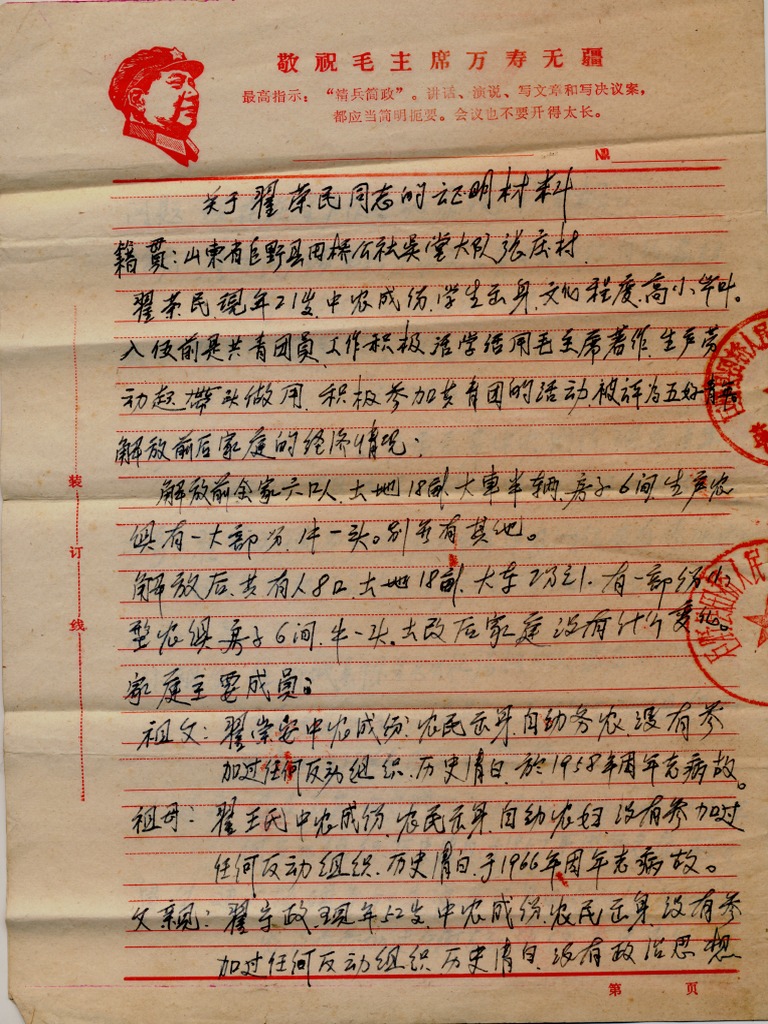 敬祝毛主席万寿无疆
最高指示：“精兵简政”。讲话、演说、写文章和写决议案，
都应当简明扼要。会议也不要开得太长。
№
关于翟荣民同志的证明材料
籍贯：山东省巨野县田桥公社吴堂大队张庄村
翟荣民现年21岁，中农成份，学生出身，文化程度，高小毕叶。
入伍前是共青团员，工作积极，活学活用毛主席著作，生产劳
动起带头做用，积极参加共青团的活动，被评为五好青年。
解放前后家庭的经济情况：
解放前全家六口人，土地18亩，大車半辆，房子6间，生产农
俱有一大部分，牛一头。别无有其他。
解放后，共有人8口，土地18亩，大车2分之1，有一部份小
型农俱，房子6间，牛一头，土改后家庭没有什个变化。
家庭主要成员：
祖父：翟崇安中农成份，农民出身，自幼务农，没有参
加过任何反动组织，历史清白，於1958年因年老病故。
祖母：翟王氏中农成份，农民出身，自幼农妇，没有参加过
任何反动组织，历史清白，于1966年因年老病故。
父亲：翟守政，现年52岁，中农成份，农民出身，没有参
加过任何反动组织，历史清白，没有政治思想
装
订
线
第 页